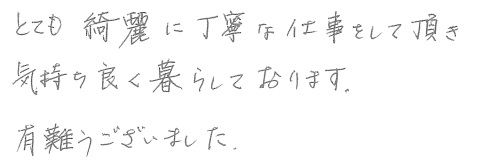 とても 綺麗に丁寧な仕事をして頂き
気持ち良く暮らしております。
有難うございました.